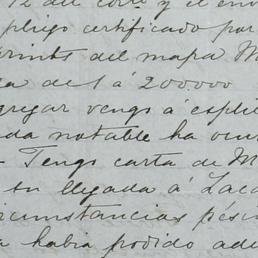 12 del corr.e y el env
pliego certificado por
prints del mapa M
a de 1 á 200.000
gregar vengo á espli
da notable ha ocur
Tengo carta de M
su llegada á Zaca
ircunstancias pési
a habia podido ade